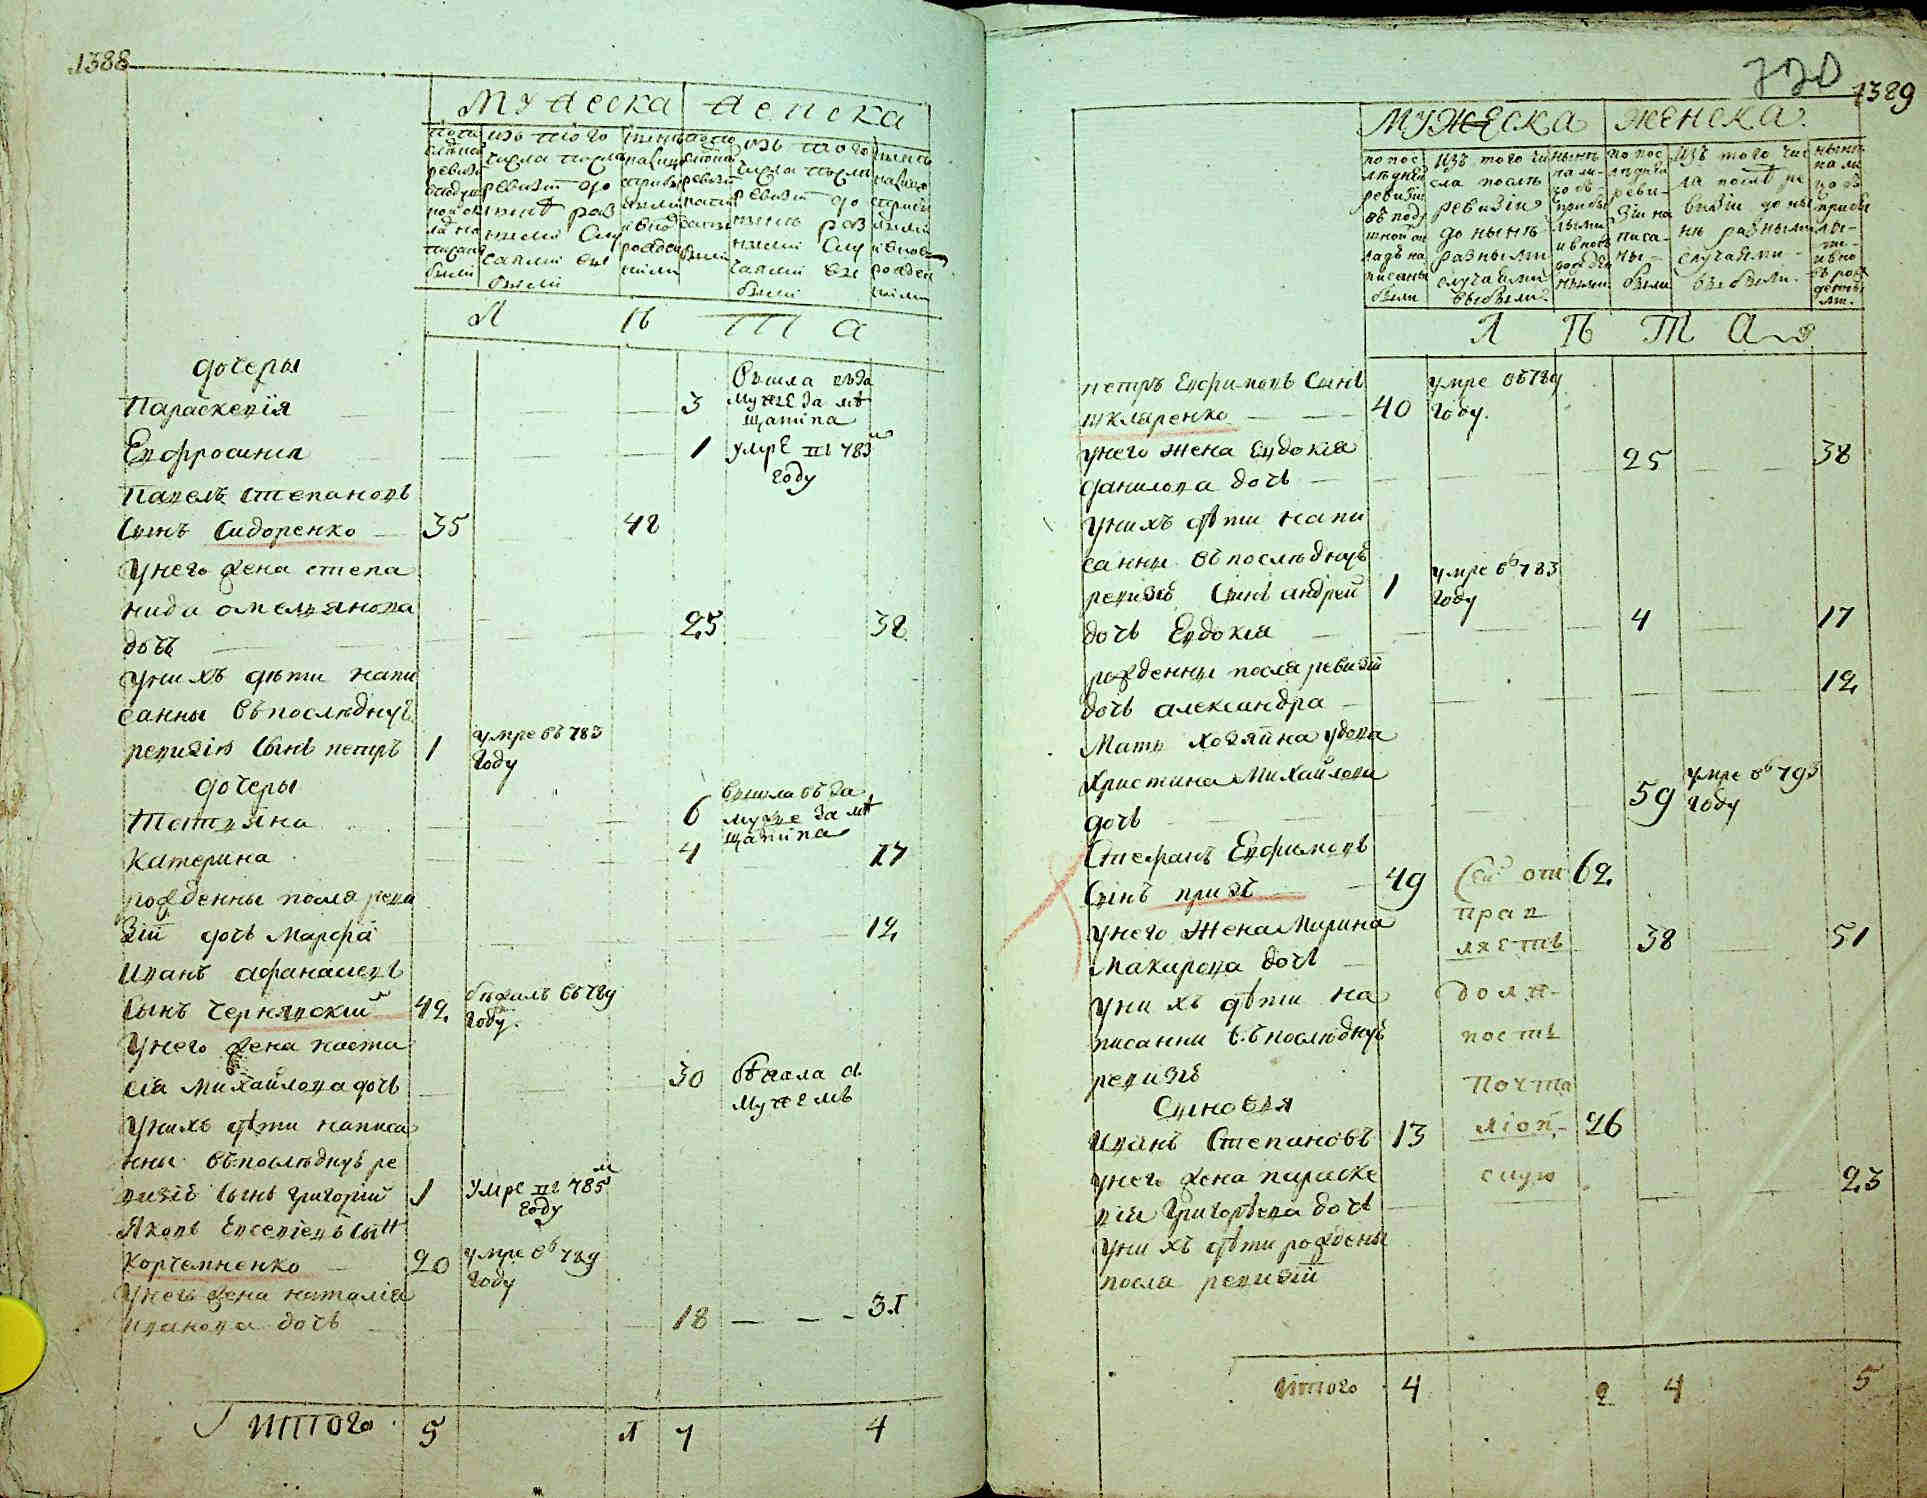 1388
мужеска женска
по последней ревизии в подушной оклад написаны были
изъ того числа после ревизии до ныне разными случаями выбыли
ныне налицо с прибылыми и вновь рожденными
по последней ревизии написаны были
изъ того числа после ревизии до ныне разными случаями выбыли
ныне налицо с прибылыми и вновь рожденными
Л ѣ т а
дочеры
Параскевія 3 вишла въ за
мужē за мѣ
щанина
Евфросинія 1 умрē въ 783м
году
Павелъ Степановъ
сынъ Сидоренко 35 48
у него жена степа
нида омельянова
дочь 25 38
у нихъ дѣти напи
санны въ последнуѣ
ревизіѣ сынъ петръ 1 умре въ 783
году
дочеры
Тетіяна 6 вишла въ за
муже за мѣ
щанина
Катерина 4 17
рожденны посля реви
зіи дочь Марфа 12
Иванъ афанасиевъ
сынъ Чернявскій 42 бѣжалъ въ 789
году
у него жена наста
сія Михайлова дочь 30 бѣжала с
мужемъ
у нихъ дѣти написа
нны въ последнуѣ ре
визіѣ сынъ григорій 1 умре въ 785м
году
Яковъ Евсеніевъ сынъ
Корчемненко 20 умре въ 789
году
у него жена наталія
иванова дочь 18 31
итого 5 1 7 4
720
1389
МУЖЕСКА ЖЕНСКА
по последней ревизии въ подушной окладъ написаны были
изъ того числа послѣ ревизіи до нынѣ разными случаями выбыли.
нынѣ на лицо съ прибылыми и вновь рожденными
по последней ревизіи написаны были
изъ того числа послѣ ревизіи до нынѣ разными случаями выбыли.
нынѣ на лицо съ прибылыми и вновь рожденными.
Л ѣ т а
петръ Евфимовъ сынъ
шкляренко 40 умре въ 789
году.
у него жена Евдокія
данилова дочь 25 38
у нихъ дѣти напи
санны въ последнуѣ
ревизіѣ сынъ андрей 1 умре въ 783
году
дочь Евдокія 4 17
рожденны посля ревизіи
дочь александра 12
Мать хозяйна удова
христина Михайлова
дочь 59 умре въ 793
году
Стефанъ Евфимовъ
сынъ призъ 49 сей отп 62
прав
ляетъ
у него жена Марина
Макарова дочь 38 51
у нихъ дѣти на
писанни въ последнуѣ
ревизіѣ
долж
ностъ
почта
ліон
скую
Синовья
Иванъ Степановъ 13 26
у него жена параске
вія григорѣева дочь 23
у нихъ дѣти рождены
посля ревизіи
итого 4 2 4 5